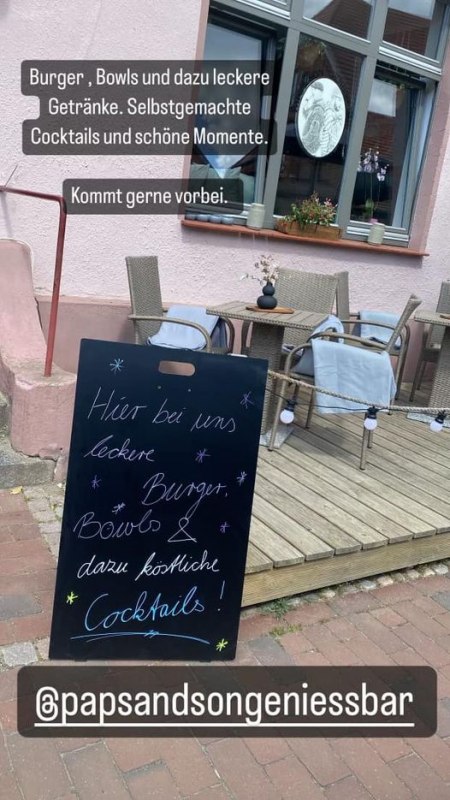 Burger , Bowls und dazu leckere
Getränke. Selbstgemachte
Cocktails und schöne Momente.
Kommt gerne vorbei.
Hier bei uns
leckere
Burger,
Bowls &
dazu köstliche
Cocktails !
@papsandsongeniessbar